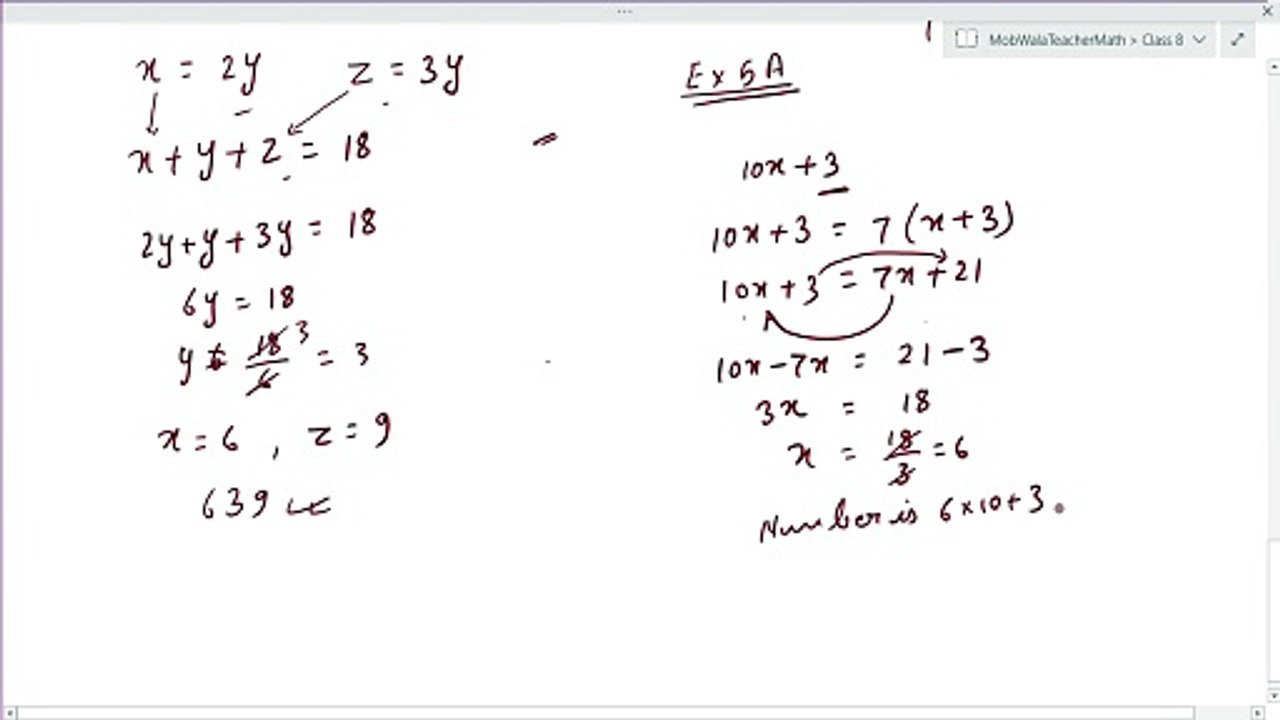 MobWalaTeacherMath > Class 8
x = 2y z = 3y
x + y + z = 18
2y + y + 3y = 18
6y = 18
y = 18/6 3 = 3
x = 6 , z = 9
639
Ex 5A
10x + 3
10x + 3 = 7 (x + 3)
10x + 3 = 7x + 21
10x - 7x = 21 - 3
3x = 18
x = 18/3 = 6
Number is 6 x 10 + 3